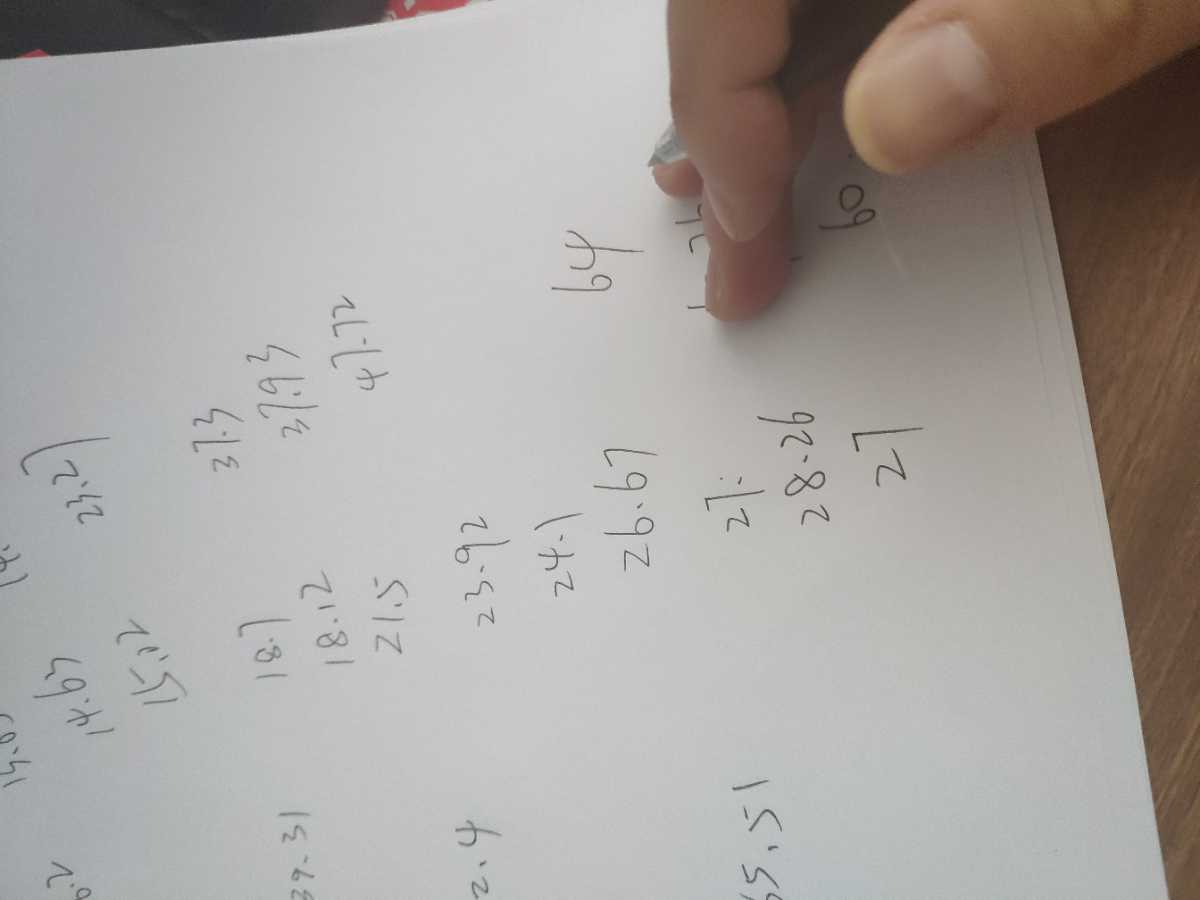 14.63 23.27
15.12
37.3
18.7 37.93
39.31 18.12 47.72
21.5
2.4 23.92
24.1 64
26.67
27.
5.51 28.26 60
27